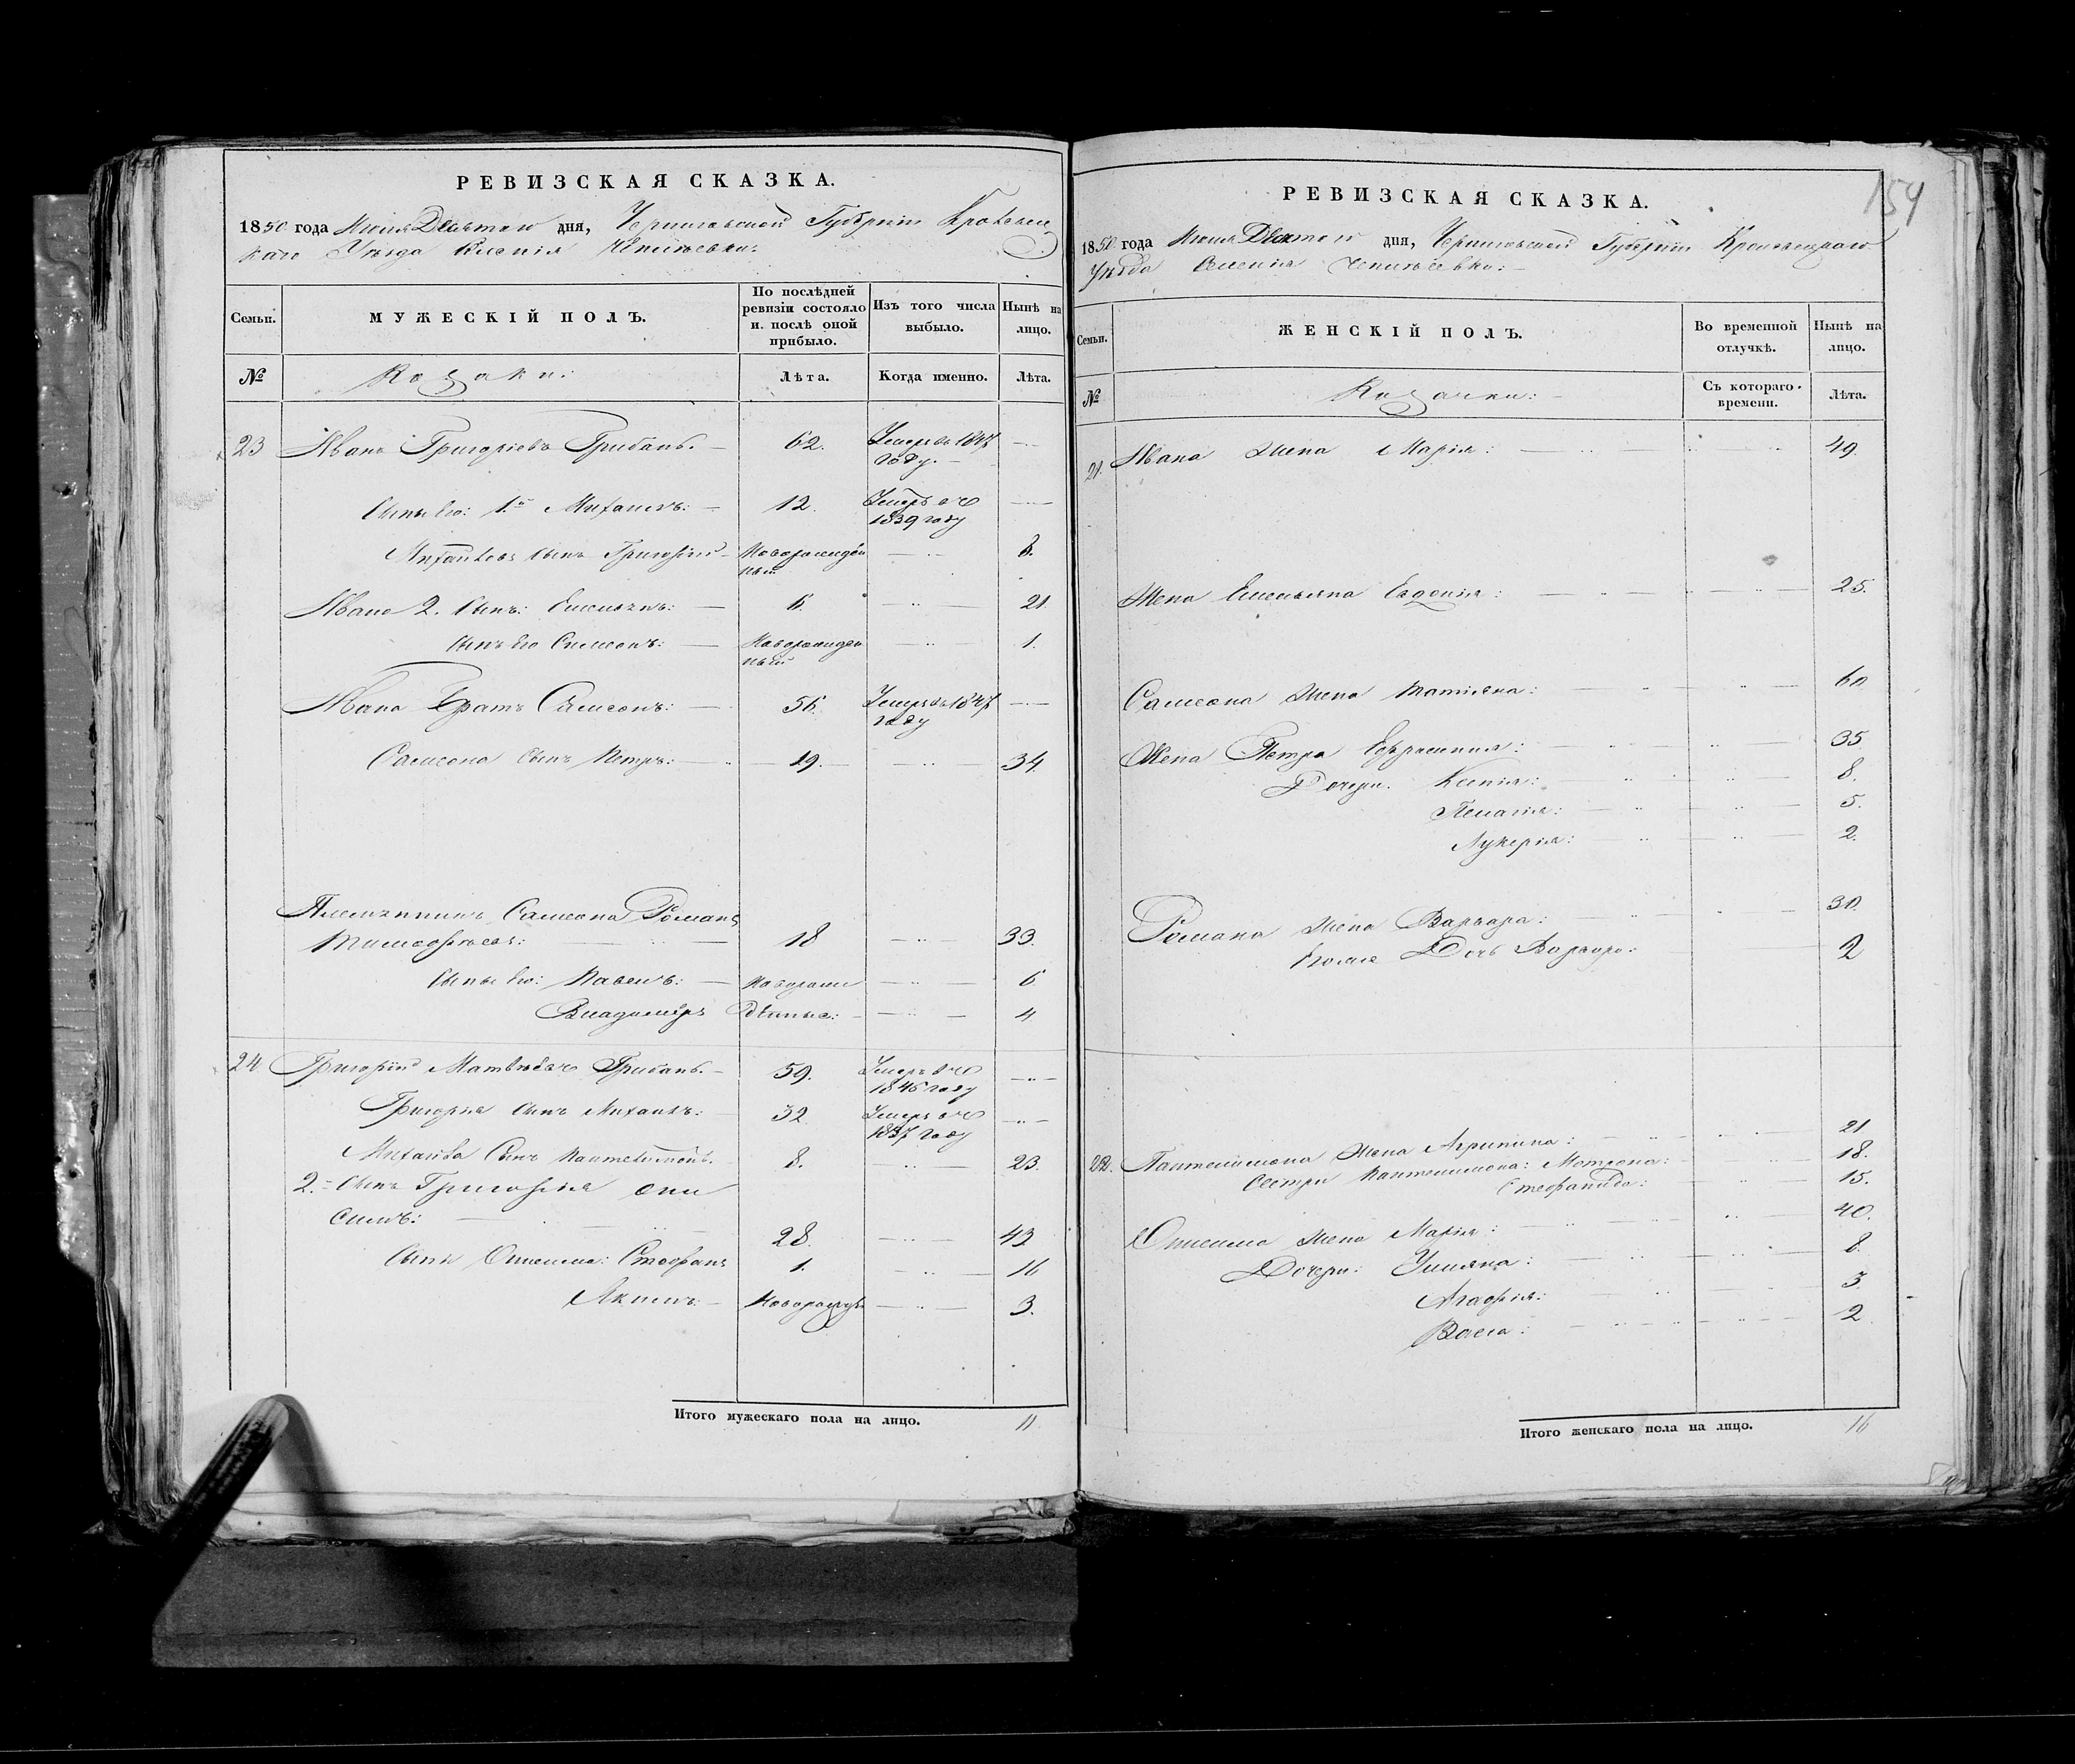 РЕВИЗСКАЯ СКАЗКА.
1850 года Июня Девятого дня, Черниговской Губерніи Кролевец
каго Уѣзда Селенія
Семьи.
МУЖЕСКІЙ ПОЛЪ.
По послѣдней ревизіи состояло и послѣ оной прибыло.
Изъ того числа выбыло.
Нынѣ на лицо.
№
Козаки:
Лѣта.
Когда именно.
Лѣта.
23 Иванъ Григоріевъ Грибанъ. — 62. Умеръ въ 1847 году. —
Сыны его: 1.й Михаилъ: — 12. Умеръ въ 1839 году
Михайловъ сынъ Григорій — Новорожден ный 8.
Ивана 2. Сынъ: Емельянъ: — 6. 21
Сынъ его Симеонъ: — Новорожден ный 1.
Ивана Братъ Самсонъ: — 56. Умеръ въ 1847 году
Самсона сынъ Петръ: — 19. 34.
Племянникъ Самсона Романъ
Тимофѣевъ: — 18 33.
Сыны его: Павелъ: — Новорож 6
Владимиръ денные: 4
24 Григорій Матвѣевъ Грибанъ. — 59. Умеръ въ 1846 году
Григорія сынъ Михаилъ: 32 Умеръ въ 1837 году
Михаила Сынъ Пантелимонъ. 8. 23.
2.й Сынъ Григорія Они
симъ: 28. 43
Сынъ Онисима: Стефанъ 1. 16
Акимъ: — Новорожд 3.
Итого мужескаго пола на лицо. 11
154
РЕВИЗСКАЯ СКАЗКА.
1850 года Июня Девятого дня, Черниговской Губерніи Кролевецкаго
Уѣзда Селенія
Семьи.
ЖЕНСКІЙ ПОЛЪ.
Во временной отлучкѣ.
Нынѣ на лицо.
№
Козачки:
Съ котораго времени.
Лѣта.
21. Ивана жена Марія: 49
Жена Емельяна Евдокія: 25.
Самсона жена Татіяна: 60
Жена Петра Ефросинія: 35
Дочери. Ксенія: 8.
Пелагія: 5.
Лукерія: 2.
Романа жена Варвара: 30.
Дочь Варвара: 2
22. Пантелимона Жена Агрипина: 21
Сестри Пантелимона: Мотрона: 18.
Стефанида: 15.
Онисима жена Марія: 40.
Дочери: Улияна: 8.
Агафія: 3
Васса: 2
Итого женскаго пола на лицо. 16